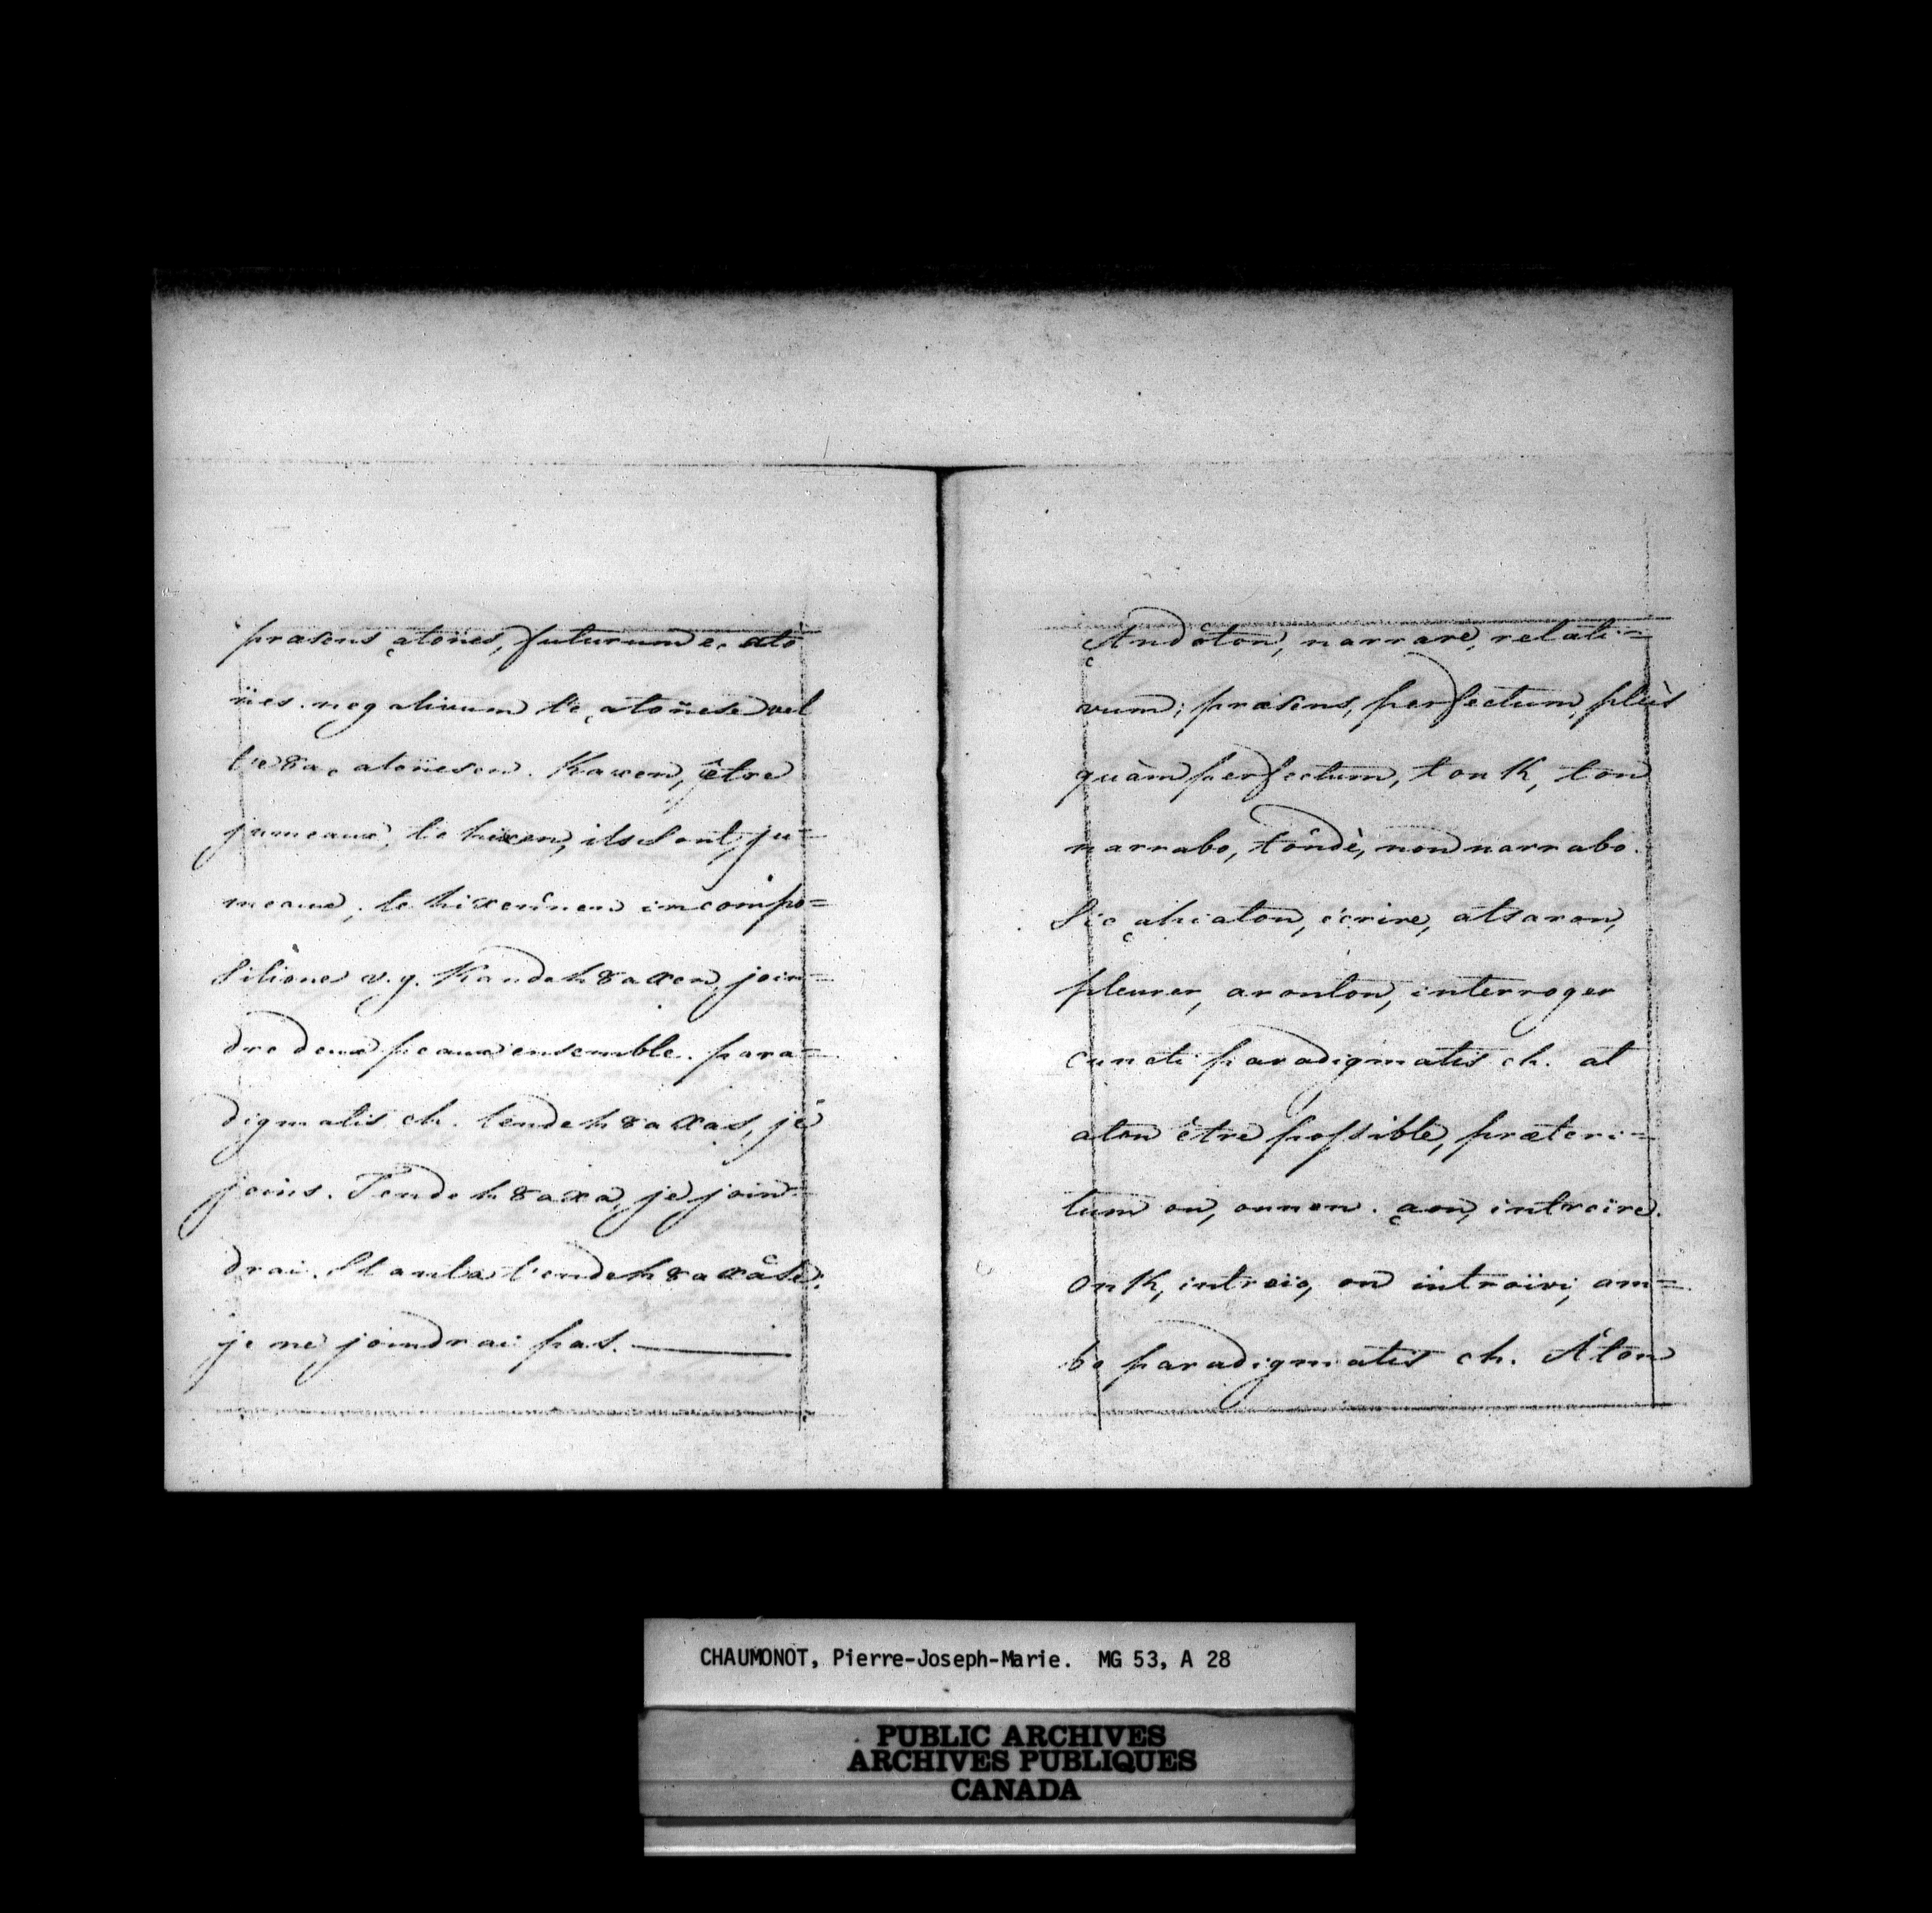 præsens ͺatoïies, futurum eͺ ato
ïies. negativum te ͺatoïiese vel
te 8aͺ atoïiesen. Kaxen, être
jumeaux, te hixen, ils sont ju=
meaux; te hixeninen in compo=
sitione v.g. Kandeh8axen, join=
dre deux peaux ensemble. para=
digmatis ch. tendeh8axas, je
joins. Tendeh8axa, je join=
drai. St anta tendeh8axâse;
je ne joindrai pas.
ͺAndoton, narrare, relati=
vum; præsens, perfectum, plùs
quàm perfectum, tonK, ton
narrabo, tôndè, non narrabo.
Sic ͺahiaton, écrire, atsaron,
pleurer, aronton, interroger
cuncti paradigmatis ch. at
aton être possible, præteri=
tum on, onnen. ͺaon, introïre.
onK, introïo, on introïvi, am=
bo paradigmatis ch. Aton
CHAUMONOT, Pierre-Joseph-Marie. MG 53, A 28
PUBLIC ARCHIVES
ARCHIVES PUBLIQUES
CANADA